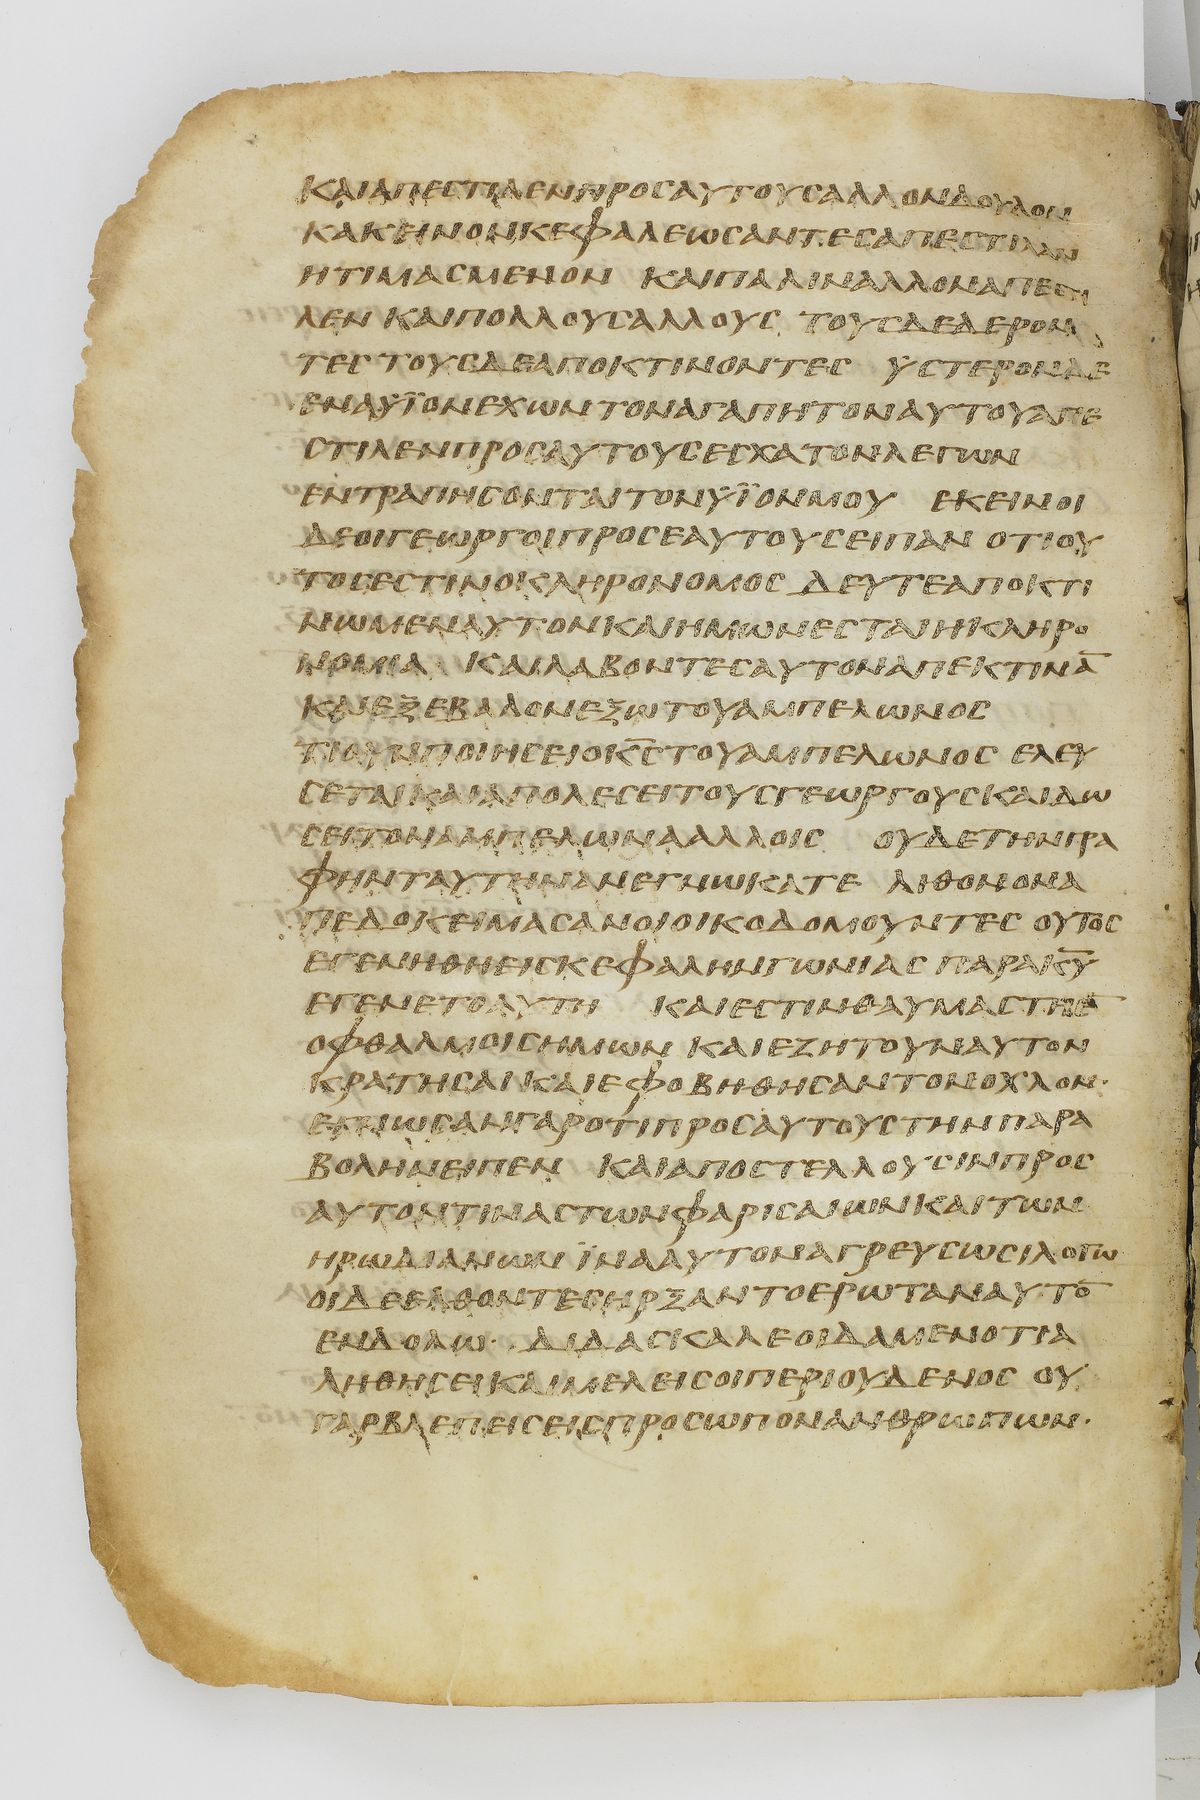 ΚΑΙΑΠΕΣΤΙΛΕΝΠΡΟΣΑΥΤΟΥΣΑΛΛΟΝΔΟΥΛΟΝ
ΚΑΚΕΙΝΟΝΚΕΦΑΛΕΩΣΑΝΤΕΣΑΠΕΣΤΙΛΑΝ
ΗΤΙΜΑΣΜΕΝΟΝ ΚΑΙΠΑΛΙΝΑΛΛΟΝΑΠΕΣΤΙ
ΛΕΝ ΚΑΙΠΟΛΛΟΥΣΑΛΛΟΥΣ ΤΟΥΣΔΕΔΕΡΟΝ
ΤΕΣ ΤΟΥΣΔΕΑΠΟΚΤΙΝΟΝΤΕΣ ΥΣΤΕΡΟΝΔΕ
ΕΝΑΫΪΟΝΕΧΩΝΤΟΝΑΓΑΠΗΤΟΝΑΥΤΟΥΑΠΕ
ΣΤΙΛΕΝΠΡΟΣΑΥΤΟΥΣΕΣΧΑΤΟΝΛΕΓΩΝ
ΕΝΤΡΑΠΗΣΟΝΤΑΙΤΟΝΫΪΟΝΜΟΥ ΕΚΕΙΝΟΙ
ΔΕΟΙΓΕΩΡΓΟΙΠΡΟΣΕΑΥΤΟΥΣΕΙΠΑΝ ΟΤΙΟΥ
ΤΟΣΕΣΤΙΝΟΚΛΗΡΟΝΟΜΟΣ ΔΕΥΤΕΑΠΟΚΤΙ
ΝΩΜΕΝΑΥΤΟΝΚΑΙΗΜΩΝΕΣΤΑΙΗΚΛΗΡΟ
ΝΟΜΙΑ ΚΑΙΛΑΒΟΝΤΕΣΑΥΤΟΝΑΠΕΚΤΙΝΑ̅
ΚΑΙΕΞΕΒΑΛΟΝΕΞΩΤΟΥΑΜΠΕΛΩΝΟΣ
ΤΙΟΥΝΠΟΙΗΣΕΙΟΚ̅Σ̅ΤΟΥΑΜΠΕΛΩΝΟΣ ΕΛΕΥ
ΣΕΤΑΙΚΑΙΑΠΟΛΕΣΕΙΤΟΥΣΓΕΩΡΓΟΥΣΚΑΙΔΩ
ΣΕΙΤΟΝΑΜΠΕΛΩΝΑΑΛΛΟΙΣ ΟΥΔΕΤΗΝΓΡΑ
ΦΗΝΤΑΥΤΗΝΑΝΕΓΝΩΚΑΤΕ ΛΙΘΟΝΟΝΑ
ΠΕΔΟΚΕΙΜΑΣΑΝΟΙΟΙΚΟΔΟΜΟΥΝΤΕΣ ΟΥΤΟΣ
ΕΓΕΝΗΘΗΕΙΣΚΕΦΑΛΗΝΓΩΝΙΑΣ ΠΑΡΑΚ̅Υ̅
ΕΓΕΝΕΤΟΑΥΤΗ ΚΑΙΕΣΤΙΝΘΑΥΜΑΣΤΗΕ̅
ΟΦΘΑΛΜΟΙΣΗΜΩΝ ΚΑΙΕΖΗΤΟΥΝΑΥΤΟΝ
ΚΡΑΤΗΣΑΙΚΑΙΕΦΟΒΗΘΗΣΑΝΤΟΝΟΧΛΟΝ·
ΕΓΝΩΣΑΝΓΑΡΟΤΙΠΡΟΣΑΥΤΟΥΣΤΗΝΠΑΡΑ
ΒΟΛΗΝΕΙΠΕΝ ΚΑΙΑΠΟΣΤΕΛΛΟΥΣΙΝΠΡΟΣ
ΑΥΤΟΝΤΙΝΑΣΤΩΝΦΑΡΙΣΑΙΩΝΚΑΙΤΩΝ
ΗΡΩΔΙΑΝΩΝ ΪΝΑΑΥΤΟΝΑΓΡΕΥΣΩΣΙΛΟΓΩ
ΟΙΔΕΕΛΘΟΝΤΕΣΗΡΞΑΝΤΟΕΡΩΤΑΝΑΥΤΟ̅
ΕΝΔΟΛΩ· ΔΙΔΑΣΚΑΛΕΟΙΔΑΜΕΝΟΤΙΑ
ΛΗΘΗΣΕΙΚΑΙΜΕΛΕΙΣΟΙΠΕΡΙΟΥΔΕΝΟΣ ΟΥ
ΓΑΡΒΛΕΠΕΙΣΕΙΣΠΡΟΣΩΠΟΝΑΝΘΡΩΠΩΝ·